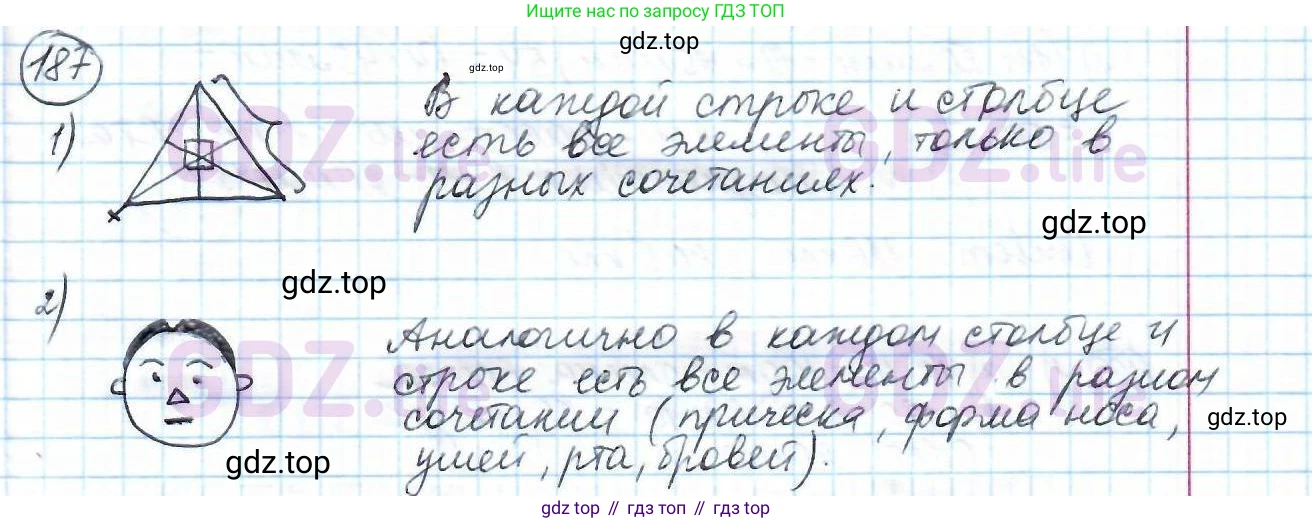 Ищите нас по запросу ГДЗ ТОП
187
gdz.top
gdz.top
1)
В каждой строке и столбце
есть все элементы, только в
разных сочетаниях.
GDZ.life
GDZ.life
gdz.top
gdz.top
2)
Аналогично в каждом столбце и
строке есть все элементы в разном
сочетании (прическа, форма носа,
ушей, рта, бровей).
GDZ.life
GDZ.life
gdz.top
gdz.top
gdz.top // гдз топ // gdz top